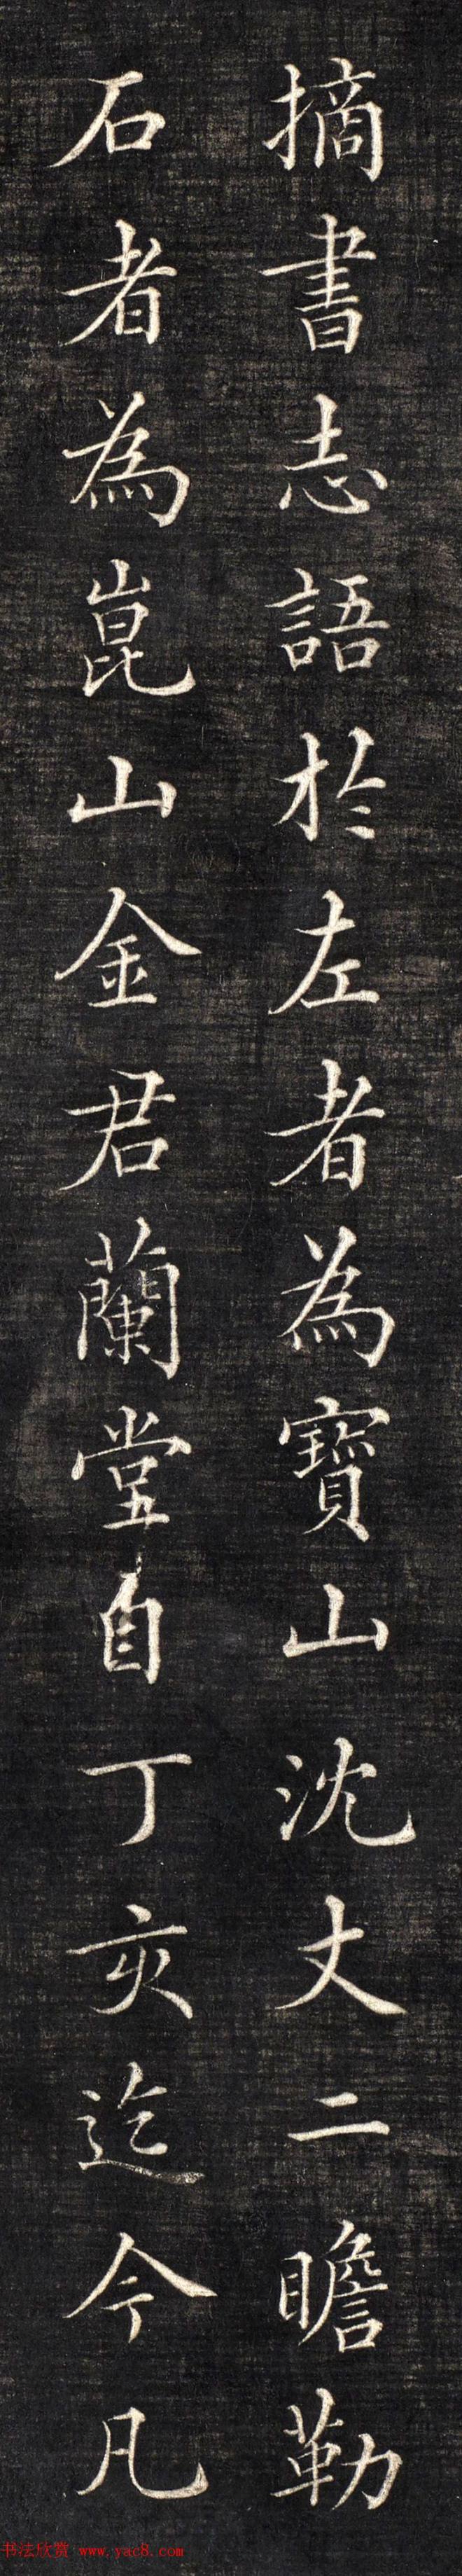 摘書志語於左者為寶山沈丈二瞻勒
石者為崑山金君蘭堂自丁亥迄今凡
书法欣赏 www.yac8.com